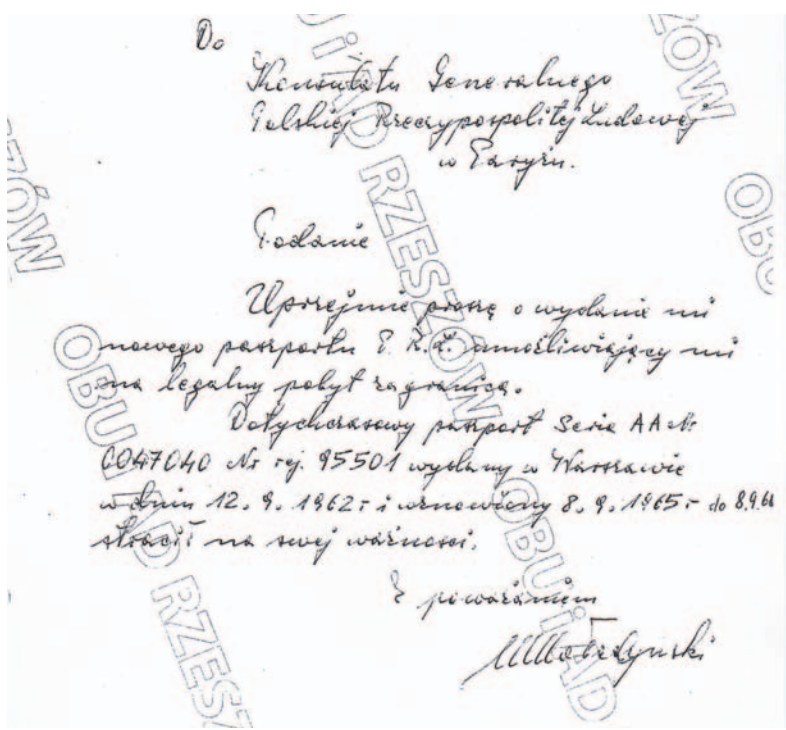 Do
Konsulatu Generalnego
Polskiej Rzeczypospolitej Ludowej
w Paryżu.
Podanie
Uprzejmie proszę o wydanie mi
nowego paszportu P. R. L. umożliwiający mi
na legalny pobyt zagranicą.
Dotychczasowy paszport Serie AA Nr
0047040 Nr rej. 95501 wydany w Warszawie
w dniu 12. 9. 1962 r i wznowiony 8. 9. 1965 r do 8.9.66
stracił na swej ważności.
Z poważaniem
OBU i AD RZESZÓW
OBU i AD RZESZÓW
OBU i AD